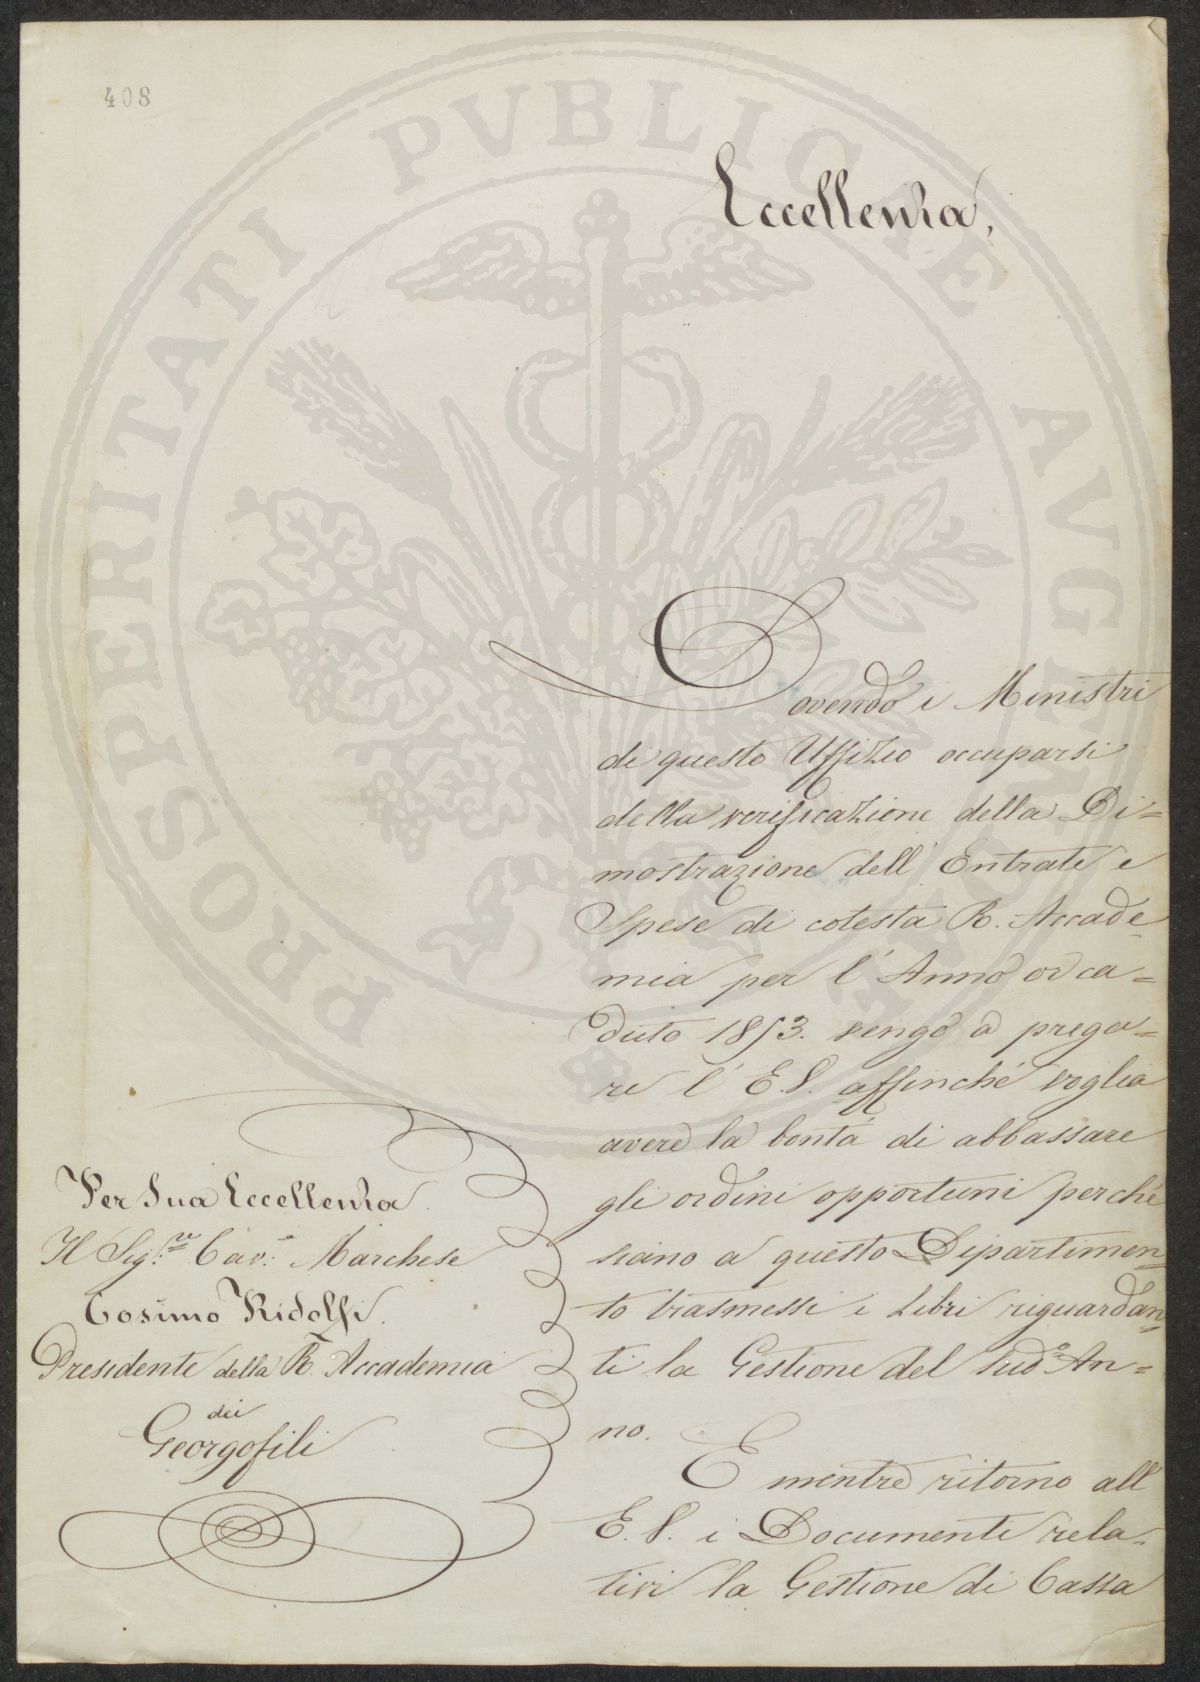 408
PROSPERITATI PVBLICAE AVGENDAE
Eccellenza,
Dovendo i Ministri
di questo Uffizio occuparsi
della verificazione della Di=
mostrazione dell' Entrate e
Spese di cotesta R. Accade=
mia per l' Anno or ca=
duto 1853. vengo a prega=
re l' E.V. affinchè voglia
avere la bontà di abbassare
gli ordini opportuni perchè
siano a questo Dipartimen=
to trasmessi i Libri riguardan=
ti la Gestione del sud.º An=
no.
E mentre ritorno all'
E.V. i Documenti rela=
tivi la Gestione di Cassa
Per Sua Eccellenza
Il Sig.re Cav.e Marchese
Cosimo Ridolfi.
Presidente della R. Accademia
dei
Georgofili